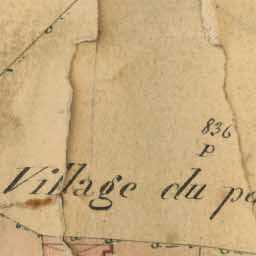 836
p
Village du pe